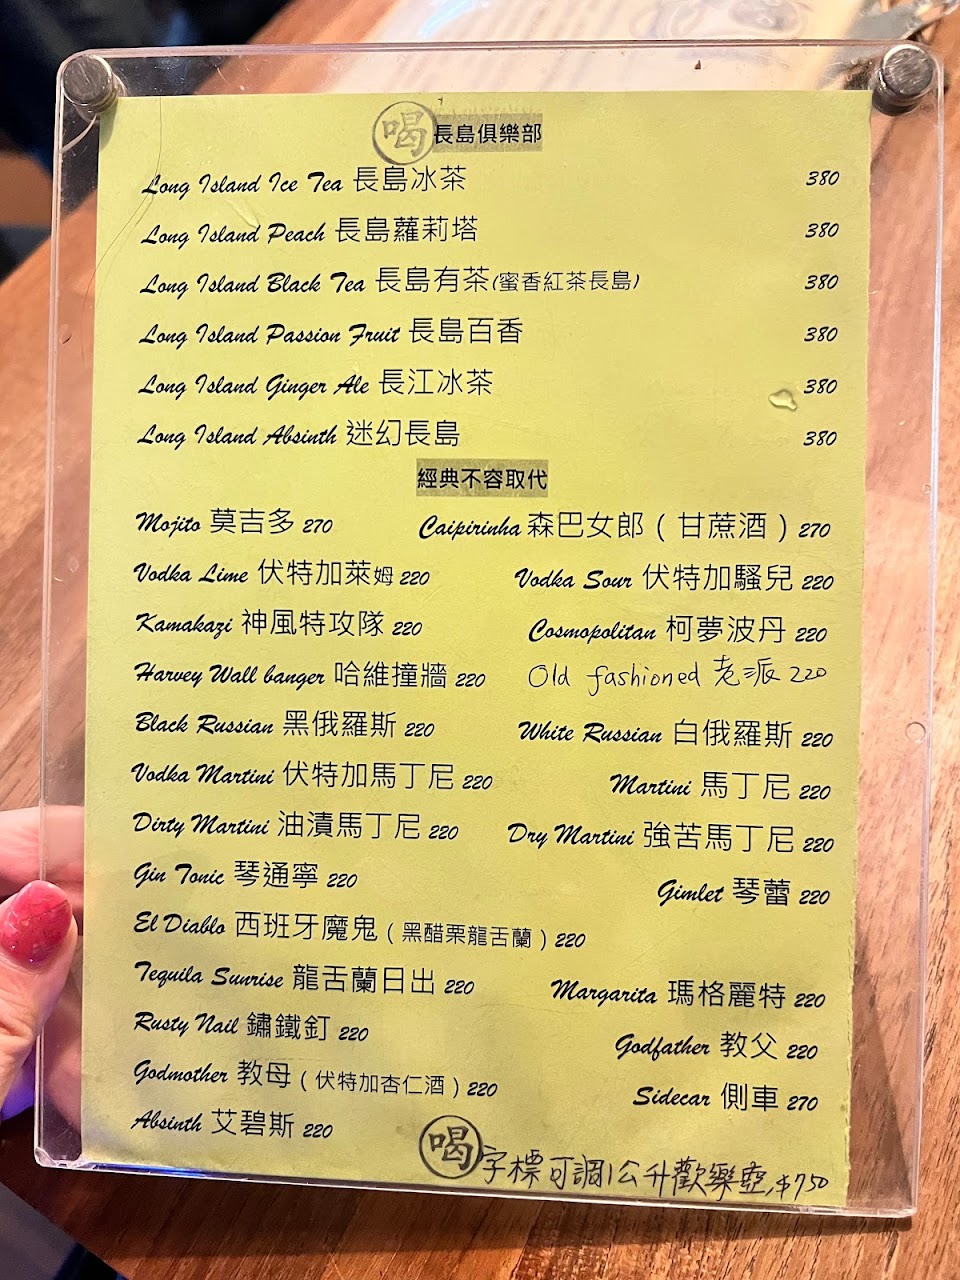 喝 長島俱樂部
Long Island Ice Tea 長島冰茶 380
Long Island Peach 長島蘿莉塔 380
Long Island Black Tea 長島有茶(蜜香紅茶長島) 380
Long Island Passion Fruit 長島百香 380
Long Island Ginger Ale 長江冰茶 380
Long Island Absinth 迷幻長島 380
經典不容取代
Mojito 莫吉多 270 Caipirinha 森巴女郎（甘蔗酒）270
Vodka Lime 伏特加萊姆 220 Vodka Sour 伏特加騷兒 220
Kamakazi 神風特攻隊 220 Cosmopolitan 柯夢波丹 220
Harvey Wall banger 哈維撞牆 220 Old fashioned 老派 220
Black Russian 黑俄羅斯 220 White Russian 白俄羅斯 220
Vodka Martini 伏特加馬丁尼 220 Martini 馬丁尼 220
Dirty Martini 油漬馬丁尼 220 Dry Martini 強苦馬丁尼 220
Gin Tonic 琴通寧 220 Gimlet 琴蕾 220
El Diablo 西班牙魔鬼（黑醋栗龍舌蘭）220
Tequila Sunrise 龍舌蘭日出 220 Margarita 瑪格麗特 220
Rusty Nail 鏽鐵釘 220 Godfather 教父 220
Godmother 教母（伏特加杏仁酒）220 Sidecar 側車 270
Absinth 艾碧斯 220
喝 字標可調1公升歡樂壺,$750